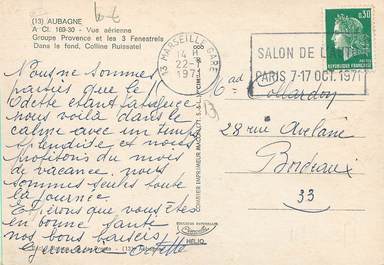 (13) AUBAGNE
A Cl. 169-30 - Vue aérienne
Groupe Provence et les 3 Fenestrels
Dans le fond, Colline Ruissatel
13 MARSEILLE GARE
22-
1971
SALON DE L'
PARIS 7-17 OCT. 1971
0,30
REPUBLIQUE FRANCAISE
Nous ne sommes
partis que le
Odette étant
nous voilà dans le
calme avec un temps
splendide et nous
profitons du mois
de vacance, nous
sommes seules toute
la journée.
Espérons que vous êtes
en bonne santé
nos bons baisers
Germaine Odette
Collardon
28 rue
Bordeaux
33
HELIO